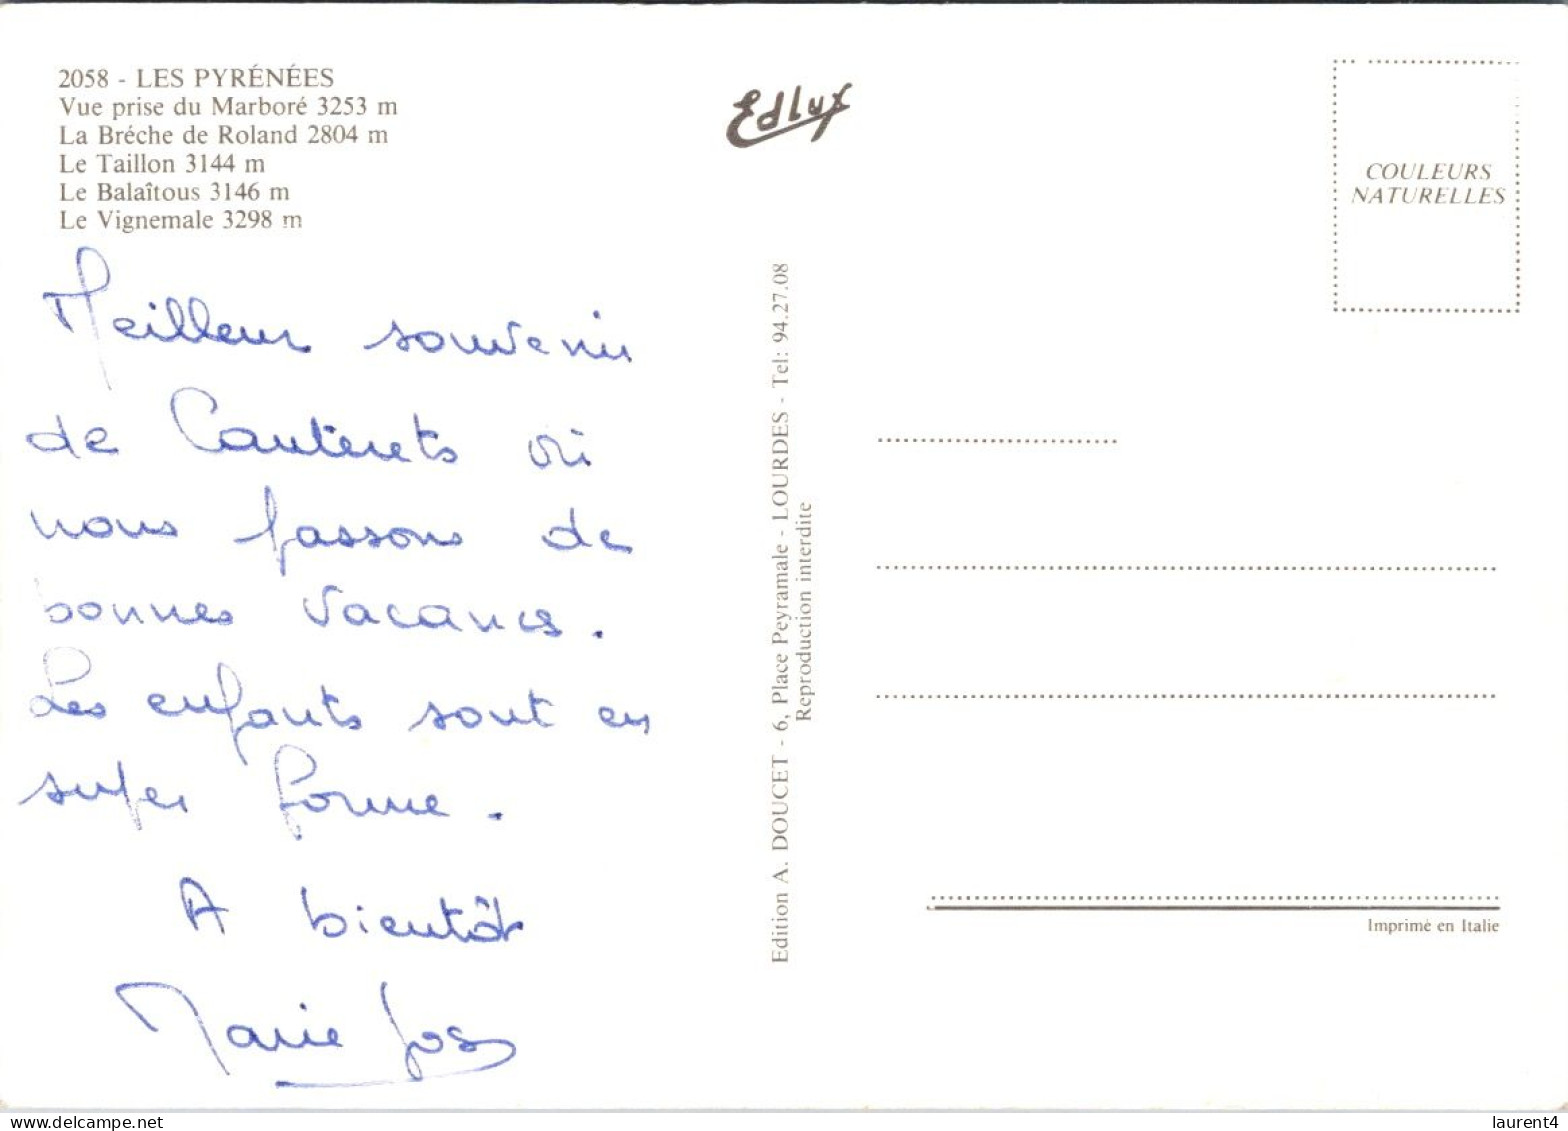 2058 - LES PYRÉNÉES
Vue prise du Marboré 3253 m
La Bréche de Roland 2804 m
Le Taillon 3144 m
Le Balaîtous 3146 m
Le Vignemale 3298 m
Meilleur souvenir
de Cauterets où
nous passons de
bonnes vacances.
Les enfants sont en
super forme.
A bientôt
Marie Jos
Edlux
Edition A. DOUCET - 6, Place Peyramale - LOURDES - Tel: 94.27.08
Reproduction interdite
COULEURS
NATURELLES
Imprimé en Italie
laurent4